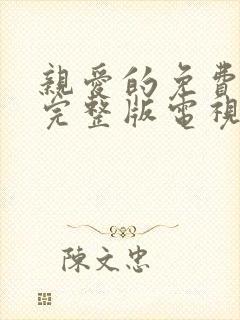 親愛的免費
完整版電視
陳文忠